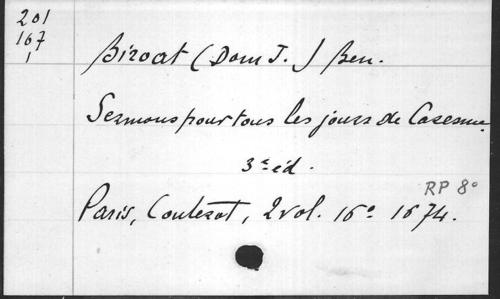 201
167
1
Biroat (Dom J.) Ben.
Sermons pour tous les jours de Caresme.
3e éd.
RP 8°
Paris, Couterot, 2 vol. 16° 1674.